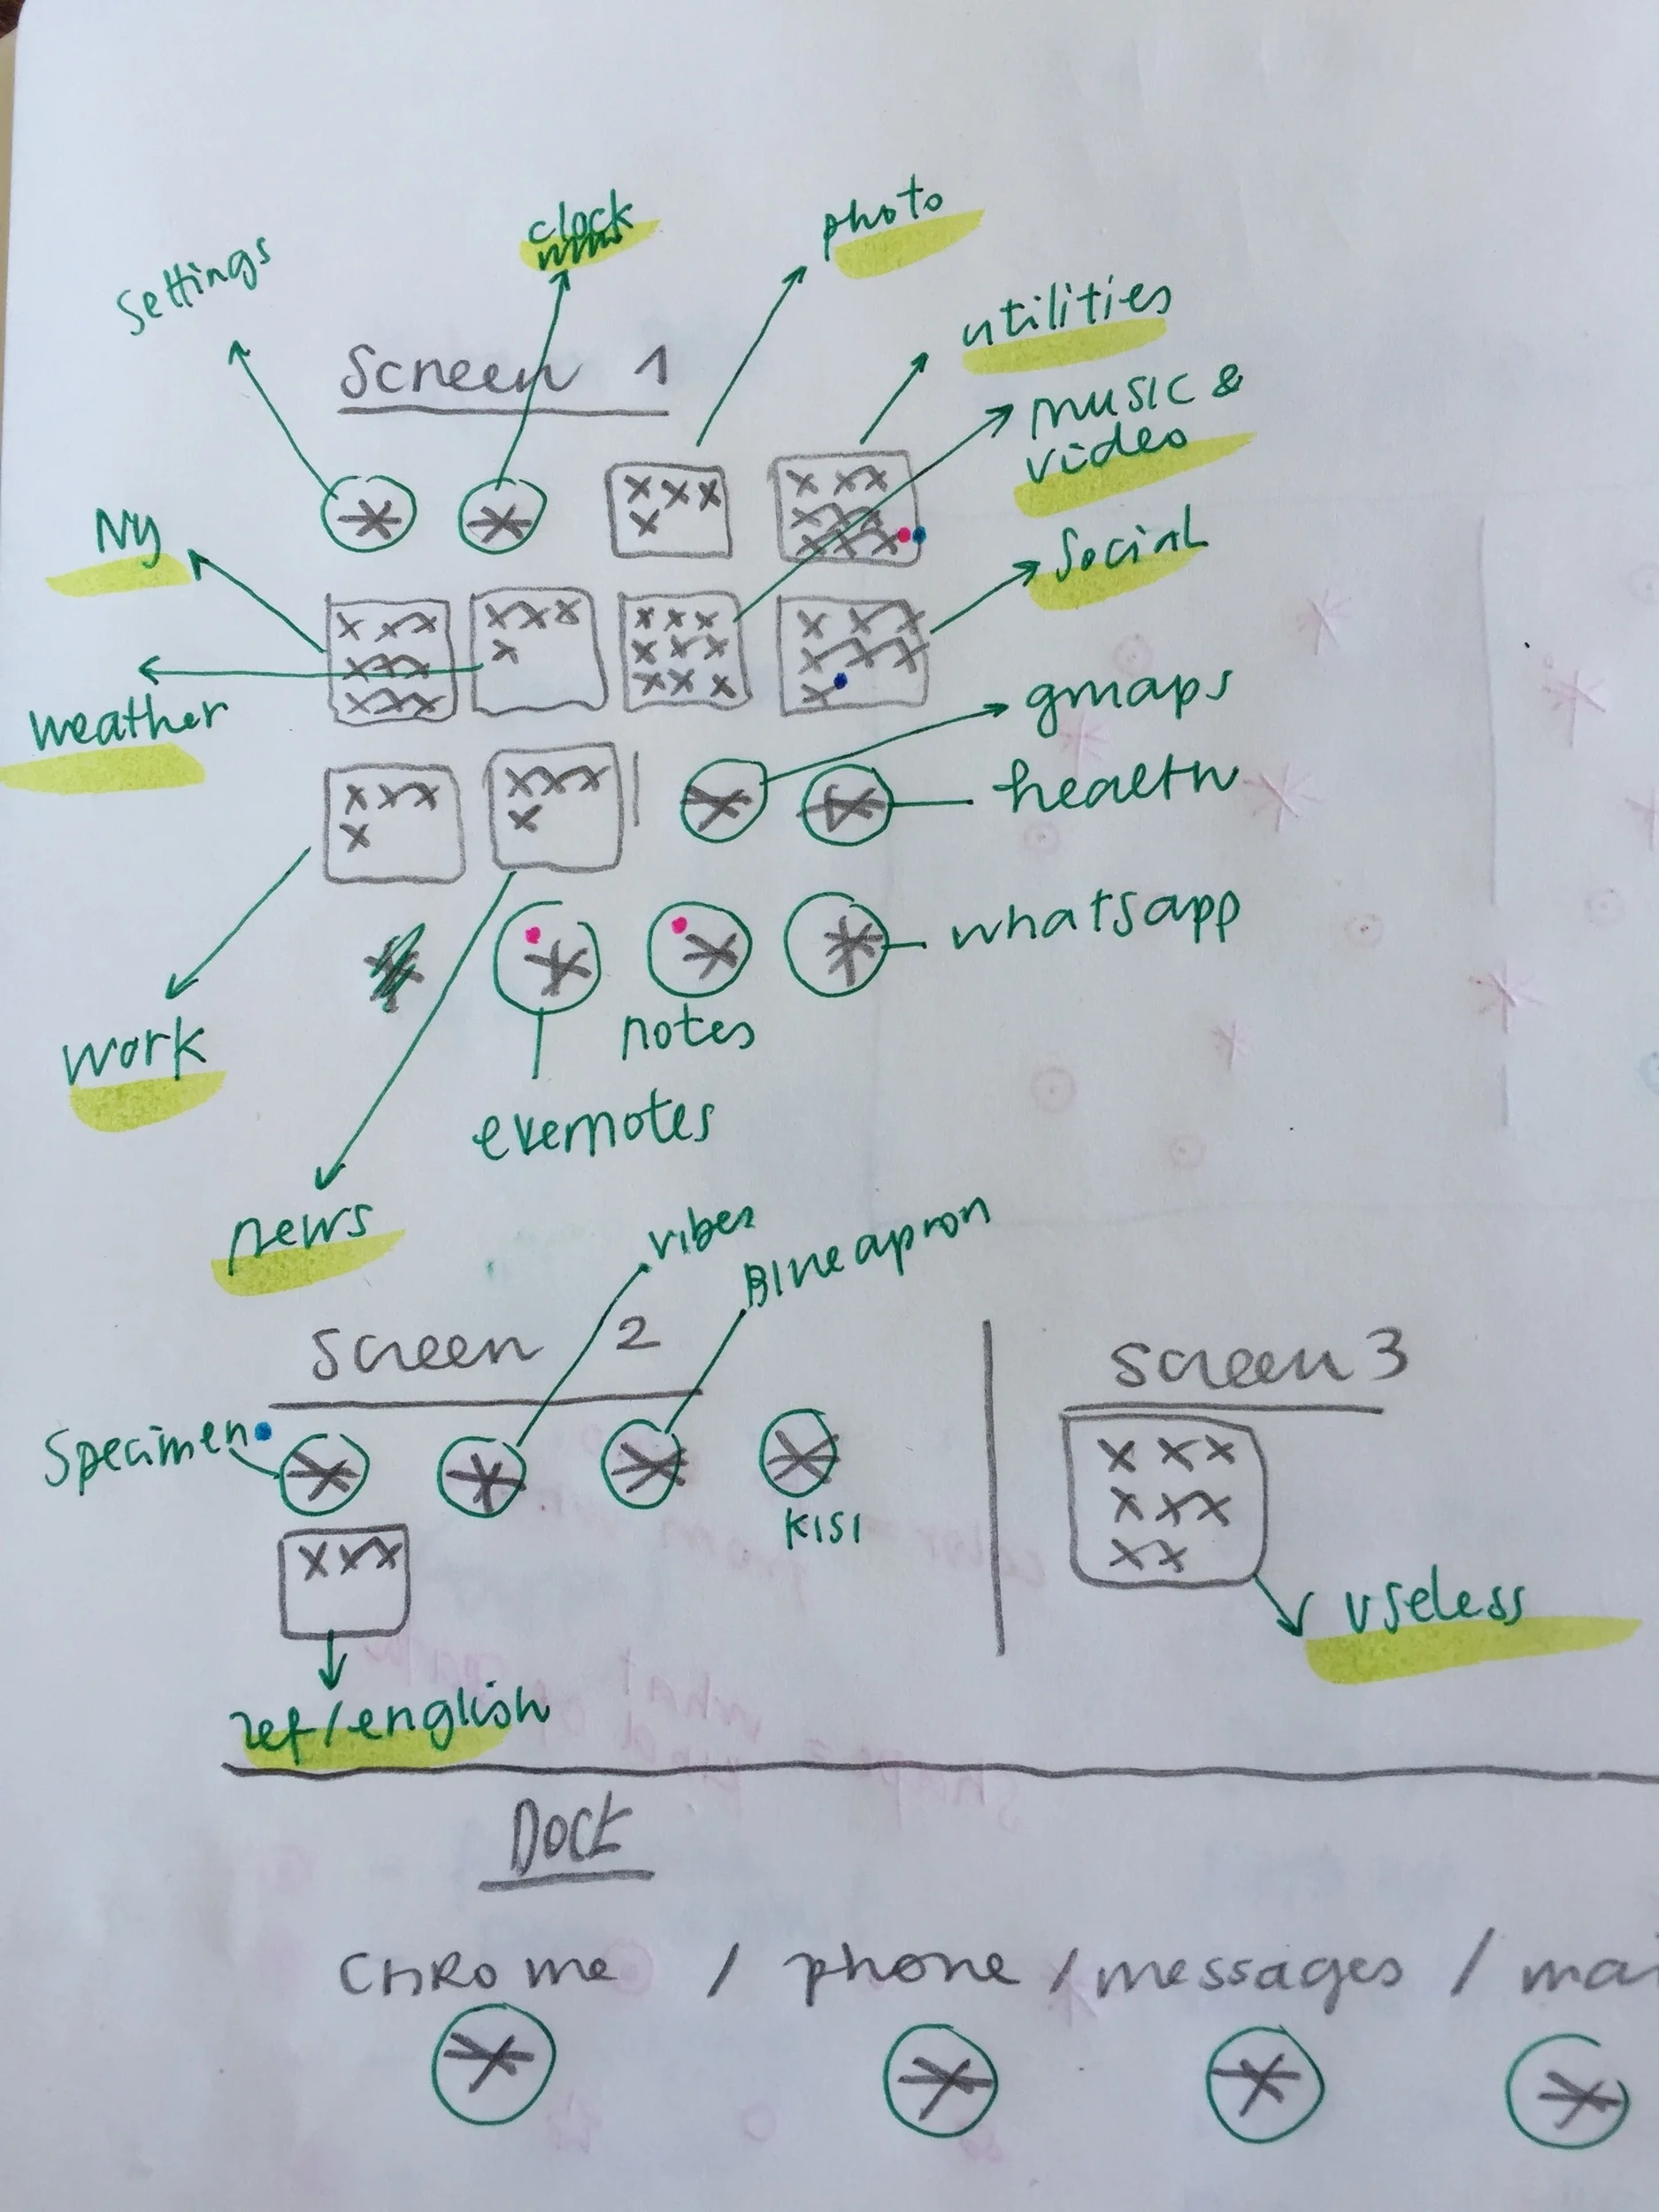 clock
photo
Settings
utilities
Screen 1
music &
video
NY
Social
gmaps
weather
health
whatsapp
notes
work
evernotes
news
vibes
Blueapron
Screen 2
Screen 3
Specimen
KISI
useless
ref/english
DOCK
CHROme / phone / messages / mai